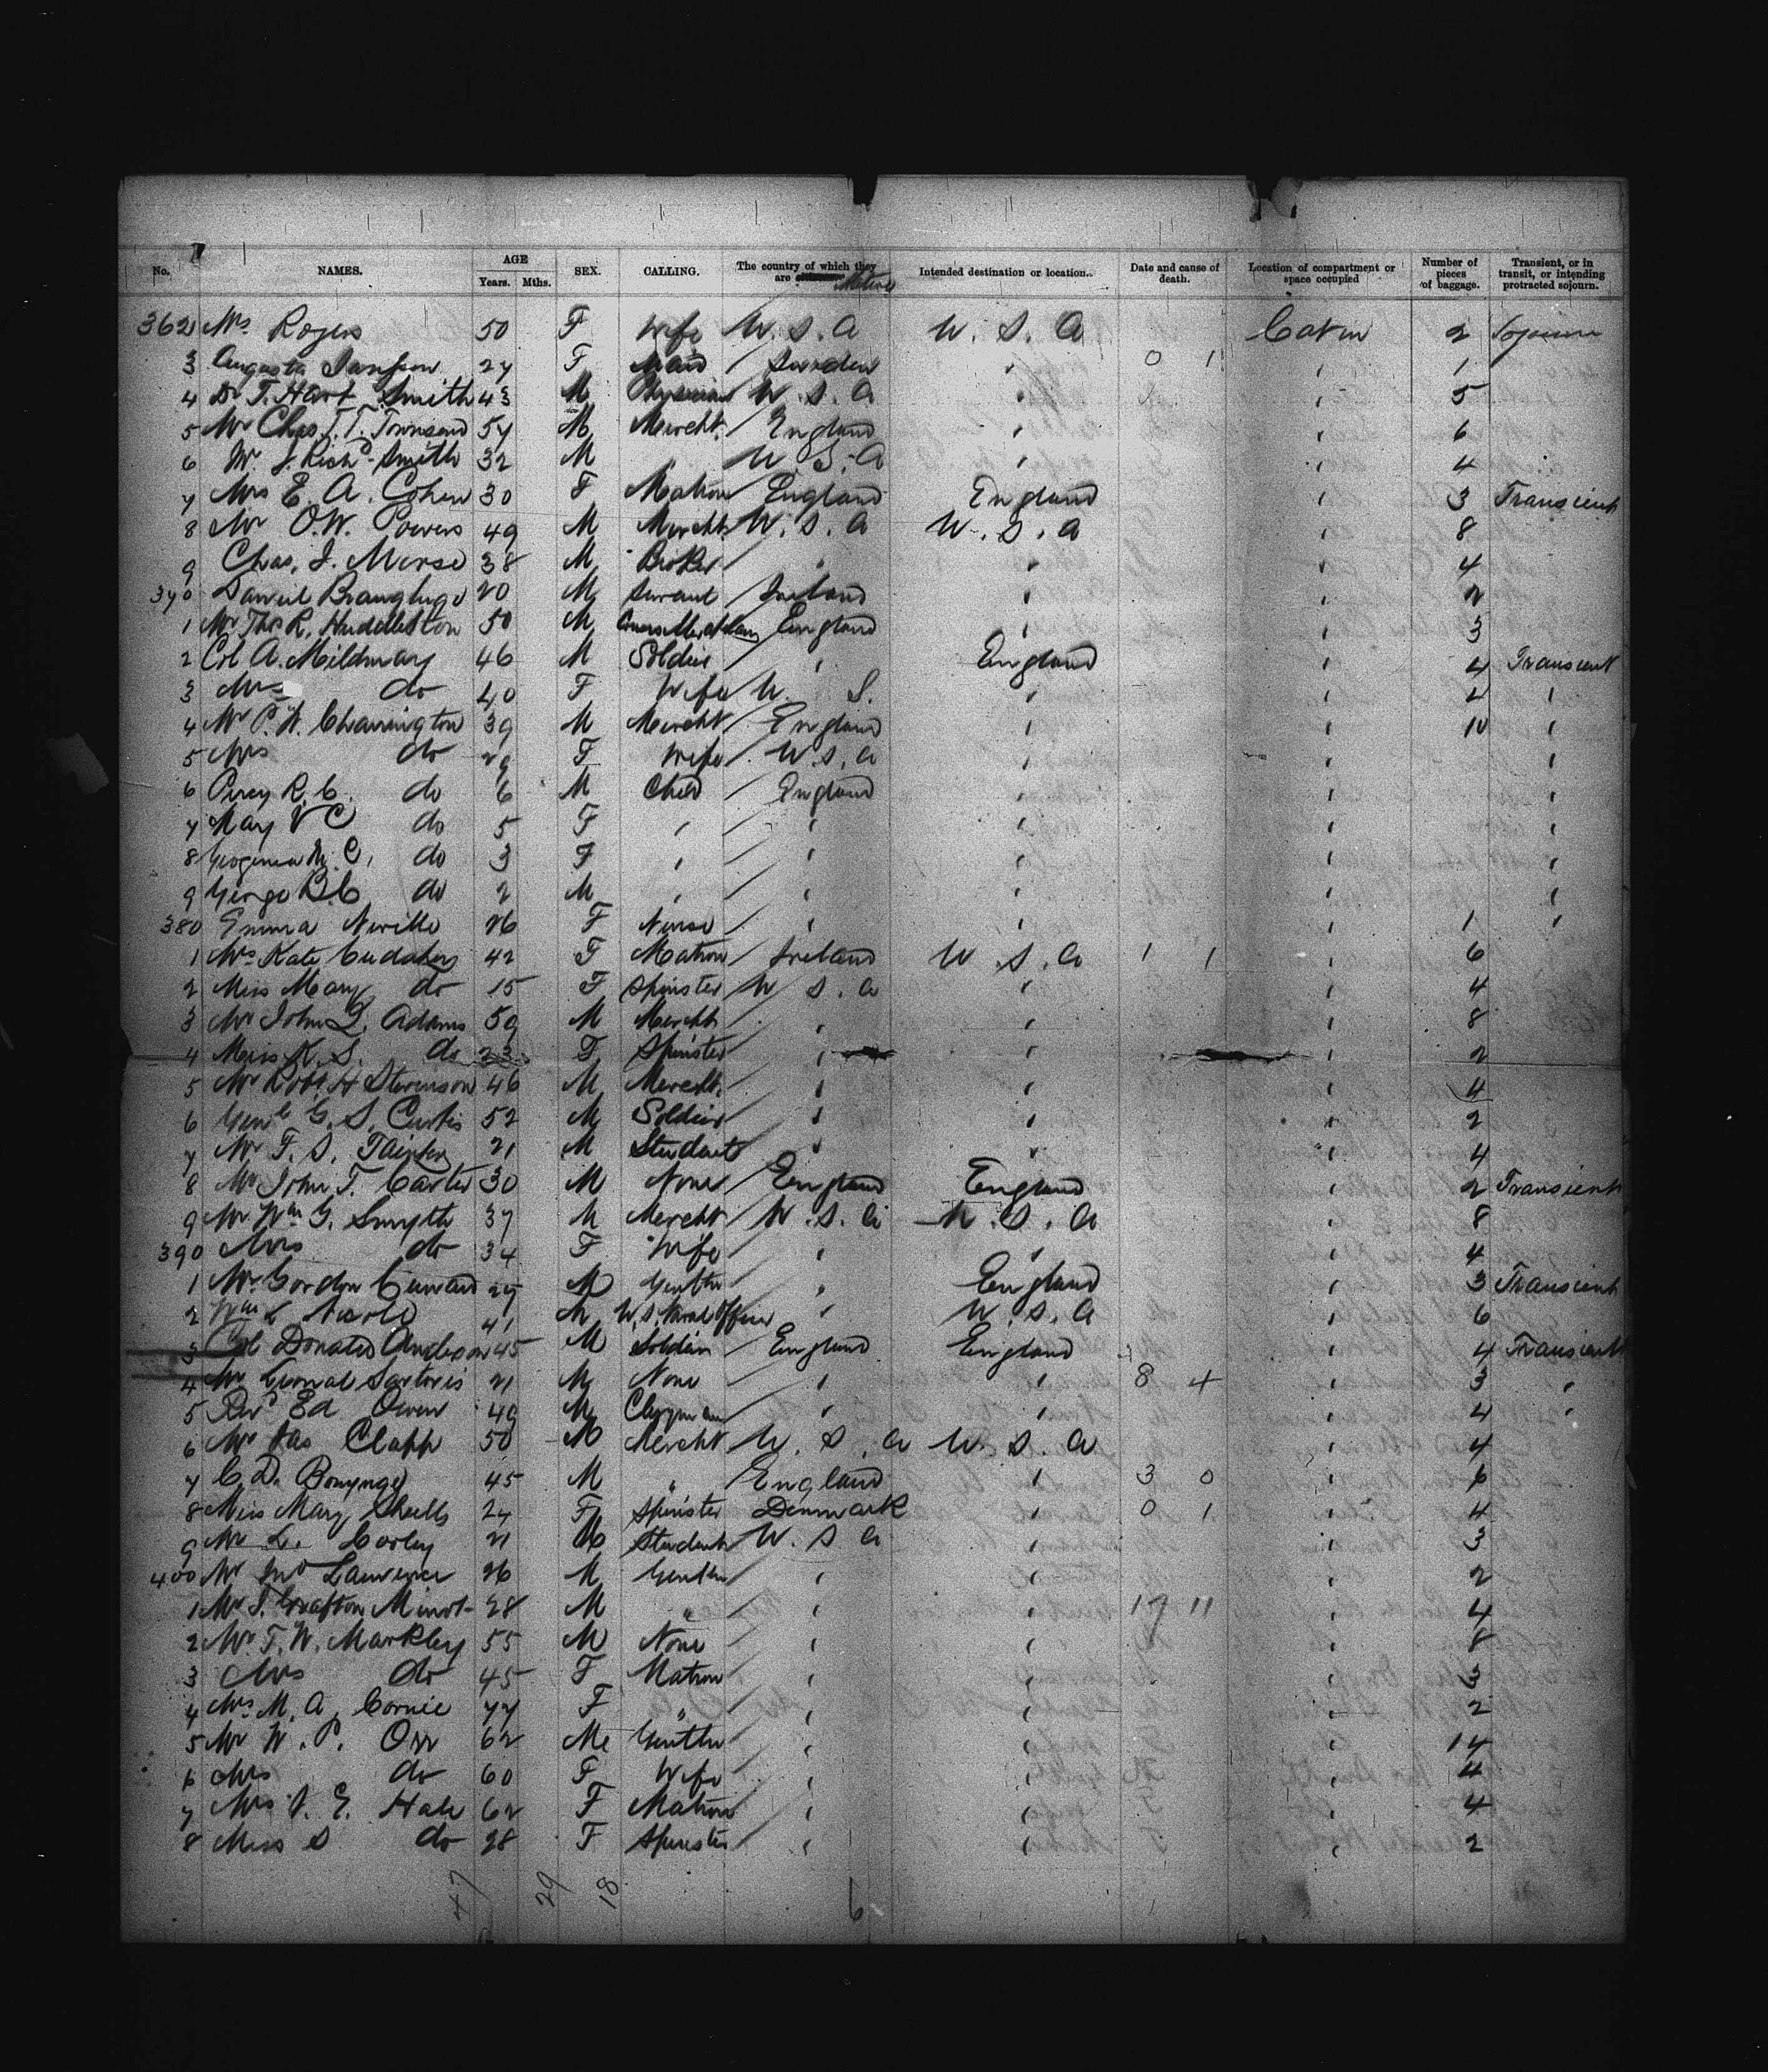 No. NAMES. AGE Years. Mths. SEX. CALLING. The country of which they are Natives Intended destination or location. Date and cause of death. Location of compartment or space occupied Number of pieces of baggage. Transient, or in transit, or intending protracted sojourn.
362 Mrs Rogers 50 F Wife U. S. A U. S. A Cabin 2 Sojourn
3 Augusta 27 F Maid Sweden " 0 1 " 1
4 Dr T. Hart Smith 43 M Physician U. S. A " " 5
5 Mr Chas. T. T. Townsend 57 M Mercht. England " " 6
6 Mr J. Richd Smith 32 M " U. S. A " " 4
7 Mrs E. A. Cohen 30 F Matron England England " 3 Transient
8 Mr O. W. Powers 49 M Mercht. U. S. A U. S. A 8
9 Chas. J. Morse 38 M Broker " " " 4
370 Daniel 20 M Servant Ireland " " 2
1 Mr Thos R. Huddleston 50 M Counsellor at Law England " " 3
2 Col A. Mildmay 46 M Soldier " England " 4 Transient
3 Mrs do 40 F Wife U. S. " " 4 "
4 Mr P. W. Charrington 39 M Mercht England " " 10 "
5 Mrs do 29 F Wife U. S. A " " "
6 Percy R. C. do 6 M Child England " " "
7 May V C do 5 F " " " " "
8 M. C. do 3 F " " " " "
9 George B. C do 2 M " " " " "
380 Emma Neville 26 F Nurse " " " 1 "
1 Mrs Kate Cudahy 42 F Matron Ireland U. S. A 1 1 " 6
2 Miss Mary do 15 F Spinster U S. A " " 4
3 Mr John Q. Adams 59 M Mercht " " " 8
4 Miss K. S. do 23 F Spinster " " " 2
5 Mr Robt. H Stevenson 46 M Mercht. " " " 4
6 Genl G. S. Curtis 52 M Soldier " " " 2
7 Mr F. S. 21 M Student " " " 4
8 Mr John T. Carter 30 M None England England " 2 Transient
9 Mr Wm G. Smyth 37 M Mercht U. S. A U. S. A " 8
390 Mrs do 34 F Wife " " " 4
1 Mr Gordon Cunard 27 M Gentln " England " 3 Transient
2 Wm L 41 M U. S. Naval Officer " U. S. A " 6
3 Col Anderson 45 M Soldier England England " 4 Transient
4 Mr Lional Sartoris 21 M None " " 8 4 " 3 "
5 Revd Ed Owen 49 M Clergyman " " " 4 "
6 Mr Jas Clapp 50 M Mercht U. S. A U. S. A " 4
7 C. D. Bonynge 45 M " England " 3 0 " 6
8 Miss Mary Skells 24 F Spinster Denmark " 0 1 " 4
9 Mr L. Corley 21 M Student U. S A " " 3
400 Mr Jno Lawrence 26 M Gentln " " " 2
1 Mr J. Grafton Minot 28 M " " " 17 11 " 4
2 Mr T. W. Markley 55 M None " " " 8
3 Mrs do 45 F Matron " " " 3
4 Mrs M. A. 77 F " " " " 2
5 Mr W. P. Orr 62 M Gentln " " " 14
6 Mrs do 60 F Wife " " " 4
7 Mrs E. Hale 62 F Matron " " " 4
8 Miss S do 28 F Spinster " " " 2
47 29 18 6